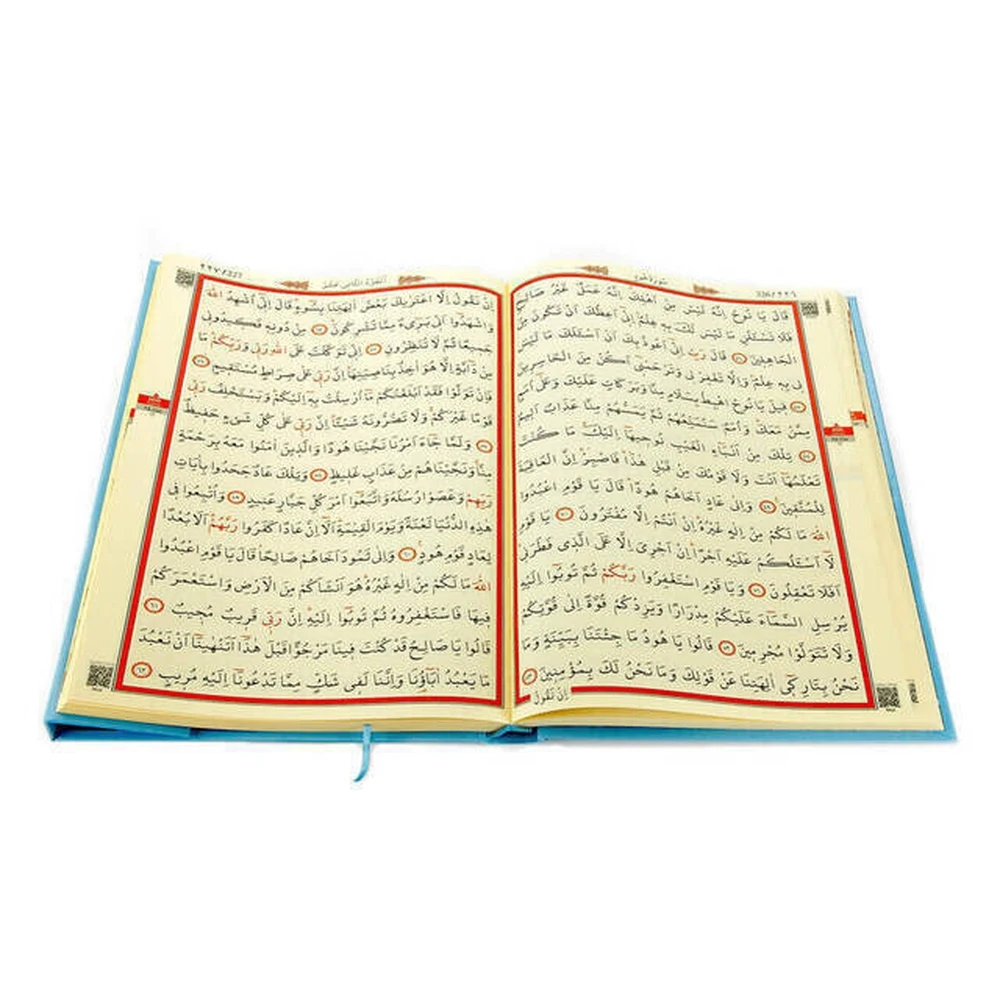 سُورَةُ هُودٍ
226/٢٢٦
قَالَ يَا نُوحُ اِنَّهُ لَيْسَ مِنْ اَهْلِكَ اِنَّهُ عَمَلٌ غَيْرُ صَالِحٍ
فَلَا تَسْـَٔلْنِ مَا لَيْسَ لَكَ بِهِ عِلْمٌ اِنِّى اَعِظُكَ اَنْ تَكُونَ مِنَ
الْجَاهِلِينَ ﴿٤٦﴾ قَالَ رَبِّ اِنِّى اَعُوذُ بِكَ اَنْ اَسْـَٔلَكَ مَا لَيْسَ
لِى بِهِ عِلْمٌ وَاِلَّا تَغْفِرْ لِى وَتَرْحَمْنِى اَكُنْ مِنَ الْخَاسِرِينَ
﴿٤٧﴾ قِيلَ يَا نُوحُ اهْبِطْ بِسَلَامٍ مِنَّا وَبَرَكَاتٍ عَلَيْكَ وَعَلٰٓى اُمَمٍ
مِمَّنْ مَعَكَ وَاُمَمٌ سَنُمَتِّعُهُمْ ثُمَّ يَمَسُّهُمْ مِنَّا عَذَابٌ اَلِيمٌ
﴿٤٨﴾ تِلْكَ مِنْ اَنْبَٓاءِ الْغَيْبِ نُوحِيهَٓا اِلَيْكَ مَا كُنْتَ
تَعْلَمُهَٓا اَنْتَ وَلَا قَوْمُكَ مِنْ قَبْلِ هٰذَا فَاصْبِرْ اِنَّ الْعَاقِبَةَ
لِلْمُتَّقِينَ ﴿٤٩﴾ وَاِلٰى عَادٍ اَخَاهُمْ هُودًا قَالَ يَا قَوْمِ اعْبُدُوا
اللّٰهَ مَا لَكُمْ مِنْ اِلٰهٍ غَيْرُهُ اِنْ اَنْتُمْ اِلَّا مُفْتَرُونَ ﴿٥٠﴾ يَا قَوْمِ
لَٓا اَسْـَٔلُكُمْ عَلَيْهِ اَجْرًا اِنْ اَجْرِىَ اِلَّا عَلَى الَّذِى فَطَرَنِى
اَفَلَا تَعْقِلُونَ ﴿٥١﴾ وَيَا قَوْمِ اسْتَغْفِرُوا رَبَّكُمْ ثُمَّ تُوبُٓوا اِلَيْهِ
يُرْسِلِ السَّمَٓاءَ عَلَيْكُمْ مِدْرَارًا وَيَزِدْكُمْ قُوَّةً اِلٰى قُوَّتِكُمْ
وَلَا تَتَوَلَّوْا مُجْرِمِينَ ﴿٥٢﴾ قَالُوا يَا هُودُ مَا جِئْتَنَا بِبَيِّنَةٍ وَمَا
نَحْنُ بِتَارِكِٓى اٰلِهَتِنَا عَنْ قَوْلِكَ وَمَا نَحْنُ لَكَ بِمُؤْمِنِينَ ﴿٥٣﴾
اِنْ نَقُولُ
اَلْجُزْءُ الثَّانِى عَشَرَ
٢٢٧/227
اِنْ نَقُولُ اِلَّا اعْتَرٰيكَ بَعْضُ اٰلِهَتِنَا بِسُٓوءٍ قَالَ اِنِّٓى اُشْهِدُ اللّٰهَ
وَاشْهَدُٓوا اَنِّى بَرِٓىءٌ مِمَّا تُشْرِكُونَ ﴿٥٤﴾ مِنْ دُونِهِ فَكِيدُونِى
جَمِيعًا ثُمَّ لَا تُنْظِرُونِ ﴿٥٥﴾ اِنِّى تَوَكَّلْتُ عَلَى اللّٰهِ رَبِّى وَرَبِّكُمْ مَا
مِنْ دَٓابَّةٍ اِلَّا هُوَ اٰخِذٌ بِنَاصِيَتِهَا اِنَّ رَبِّى عَلٰى صِرَاطٍ مُسْتَقِيمٍ ﴿٥٦﴾
فَاِنْ تَوَلَّوْا فَقَدْ اَبْلَغْتُكُمْ مَٓا اُرْسِلْتُ بِهِ اِلَيْكُمْ وَيَسْتَخْلِفُ رَبِّى
قَوْمًا غَيْرَكُمْ وَلَا تَضُرُّونَهُ شَيْـًٔا اِنَّ رَبِّى عَلٰى كُلِّ شَىْءٍ حَفِيظٌ
﴿٥٧﴾ وَلَمَّا جَٓاءَ اَمْرُنَا نَجَّيْنَا هُودًا وَالَّذِينَ اٰمَنُوا مَعَهُ بِرَحْمَةٍ
مِنَّا وَنَجَّيْنَاهُمْ مِنْ عَذَابٍ غَلِيظٍ ﴿٥٨﴾ وَتِلْكَ عَادٌ جَحَدُوا بِاٰيَاتِ
رَبِّهِمْ وَعَصَوْا رُسُلَهُ وَاتَّبَعُٓوا اَمْرَ كُلِّ جَبَّارٍ عَنِيدٍ ﴿٥٩﴾ وَاُتْبِعُوا فِى
هٰذِهِ الدُّنْيَا لَعْنَةً وَيَوْمَ الْقِيٰمَةِ اَلَٓا اِنَّ عَادًا كَفَرُوا رَبَّهُمْ اَلَا بُعْدًا
لِعَادٍ قَوْمِ هُودٍ ﴿٦٠﴾ وَاِلٰى ثَمُودَ اَخَاهُمْ صَالِحًا قَالَ يَا قَوْمِ اعْبُدُوا
اللّٰهَ مَا لَكُمْ مِنْ اِلٰهٍ غَيْرُهُ هُوَ اَنْشَاَكُمْ مِنَ الْاَرْضِ وَاسْتَعْمَرَكُمْ
فِيهَا فَاسْتَغْفِرُوهُ ثُمَّ تُوبُٓوا اِلَيْهِ اِنَّ رَبِّى قَرِيبٌ مُجِيبٌ ﴿٦١﴾
قَالُوا يَا صَالِحُ قَدْ كُنْتَ فِينَا مَرْجُوًّا قَبْلَ هٰذَٓا اَتَنْهٰينَٓا اَنْ نَعْبُدَ
مَا يَعْبُدُ اٰبَٓاؤُ۬نَا وَاِنَّنَا لَفِى شَكٍّ مِمَّا تَدْعُونَٓا اِلَيْهِ مُرِيبٍ ﴿٦٢﴾